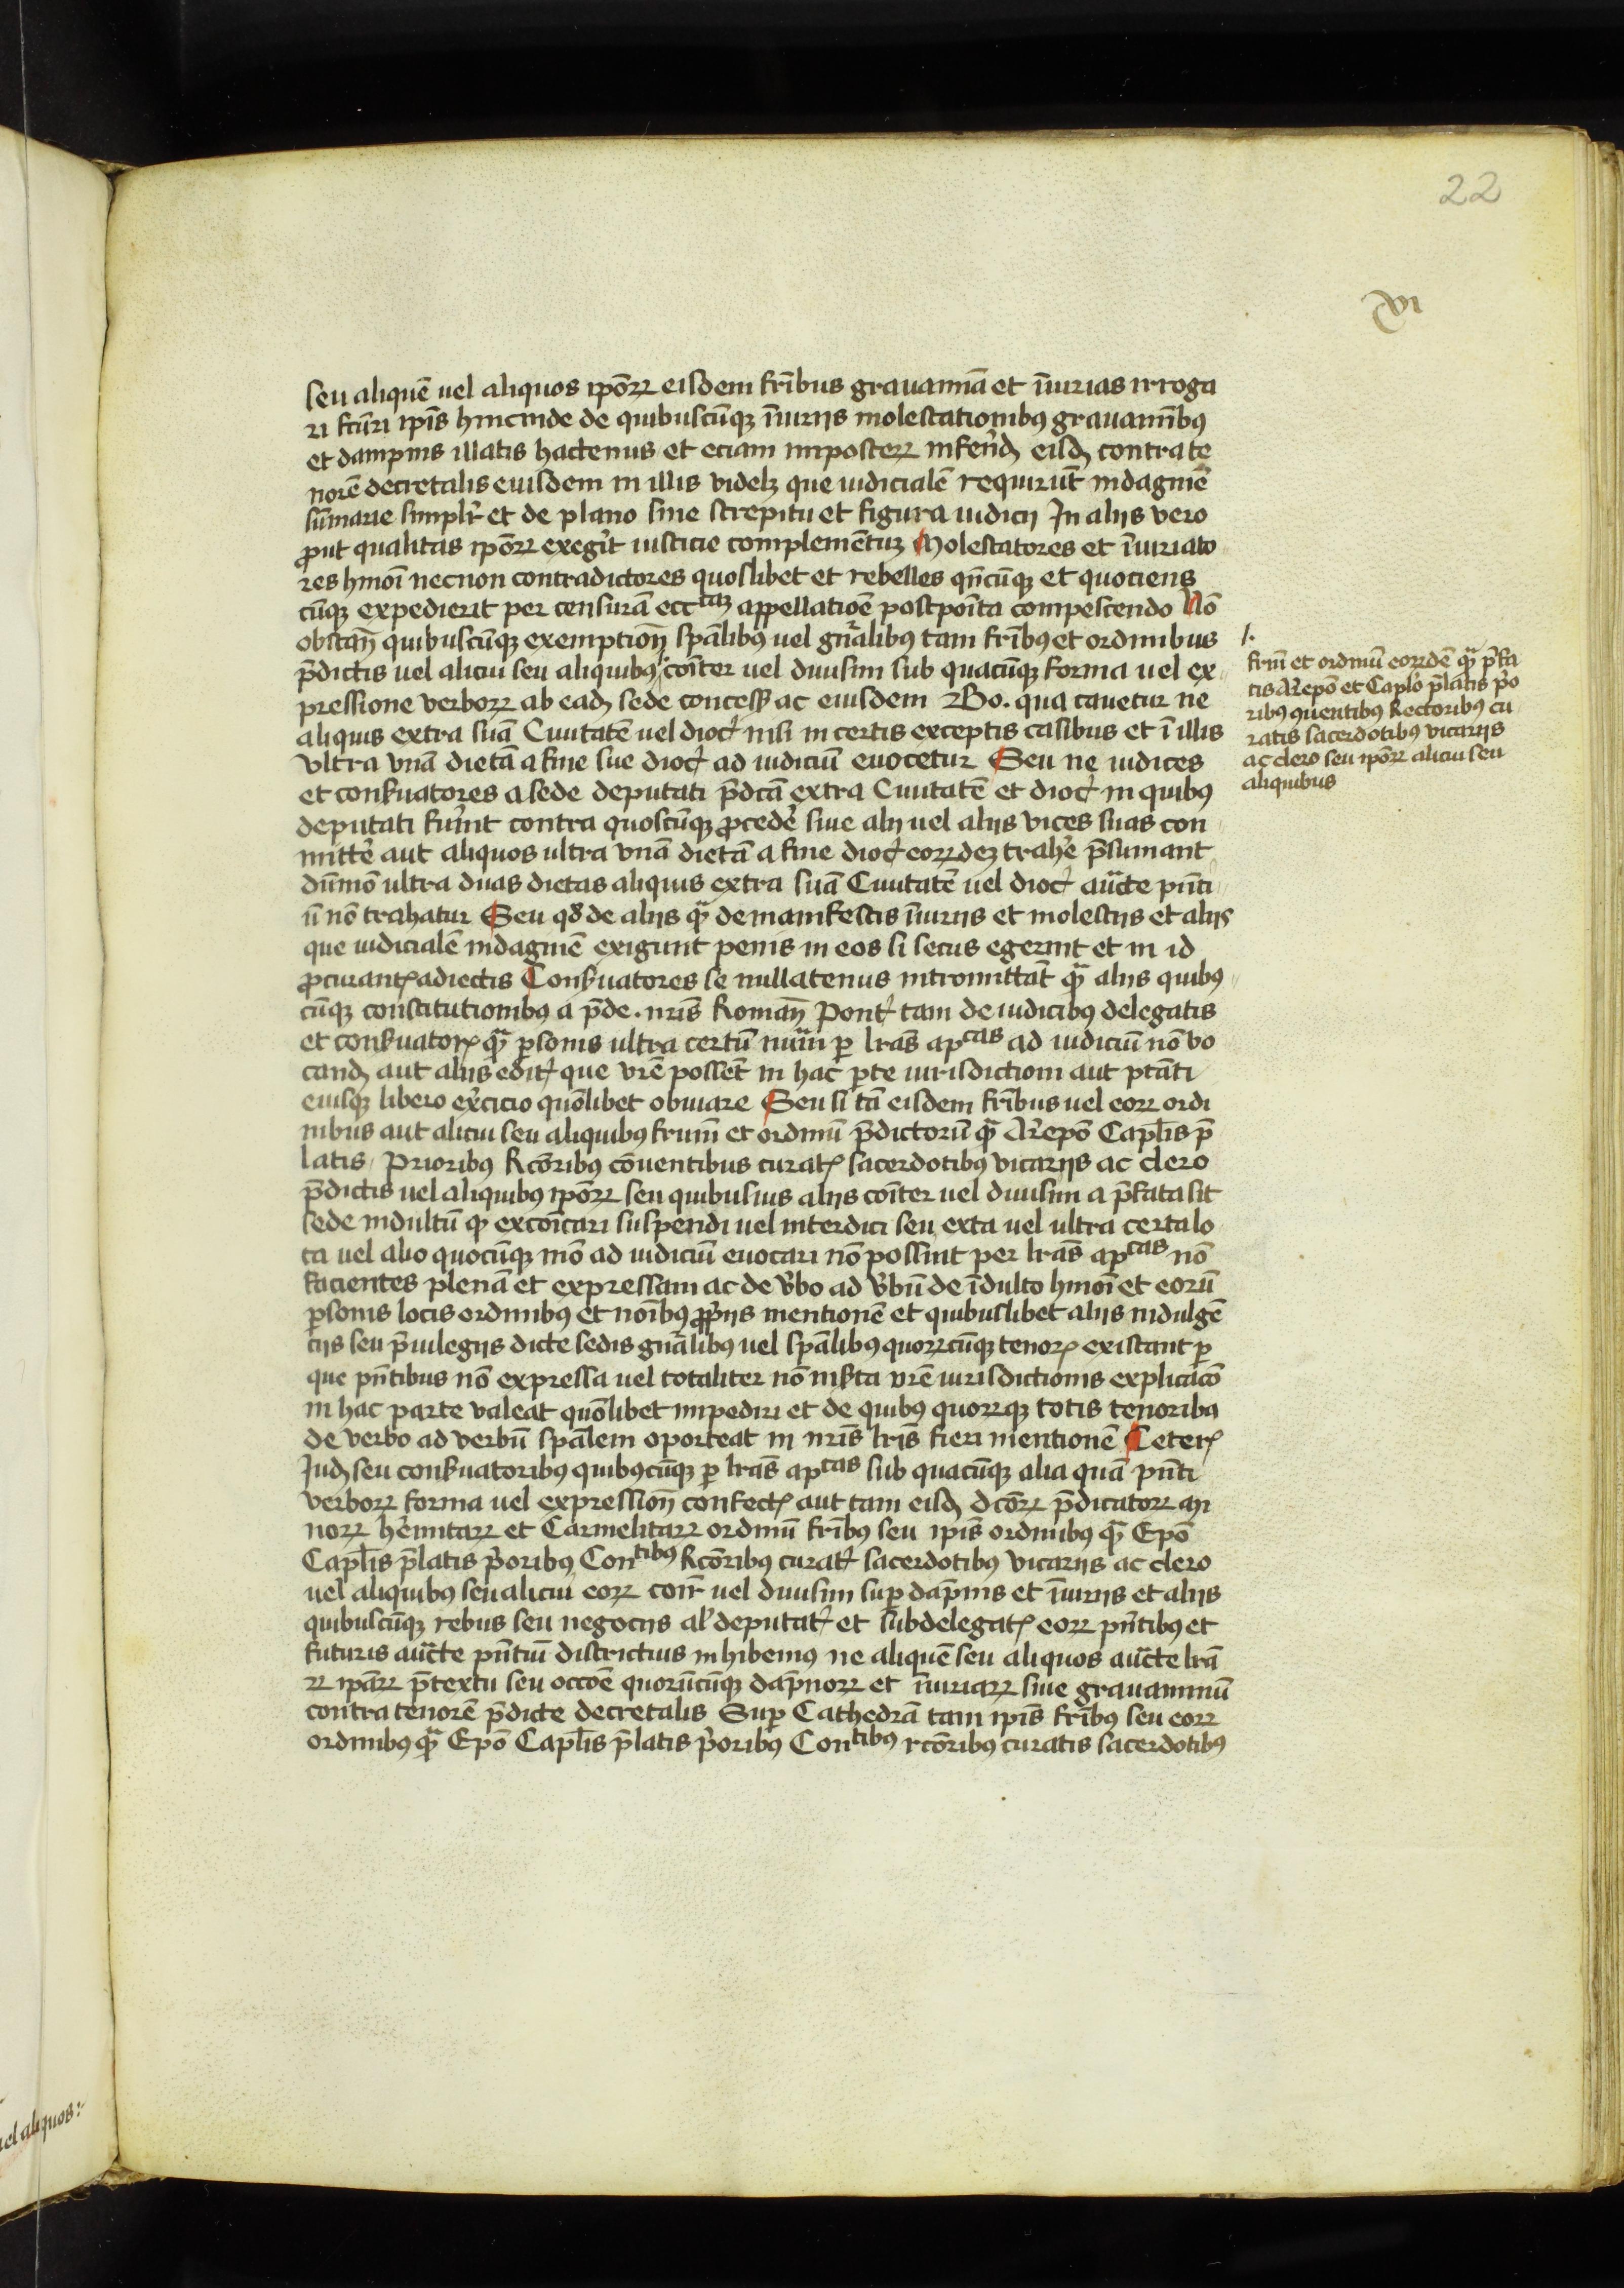 22
vi
seu aliquē uel aliquos ipōꝝ eisdem fr̄ibus grauamīa et īiurias irroga
ri fcūri ipīs hincinde de quibuscūqꝫ īiurijs molestationibꝰ grauamībꝰ
et dampnis illatis hactenus et eciam imposterꝝ infern̄d eisdꝫ contra te
norē decretalis eiusdem in illis videlꝫ que iudicialē requirūt indaginē
sūmarie simplr̄ et de plano sine strepitu et figura iudicij In alijs vero
ꝓut qualitas ipōꝝ exegīt iusticie complemētuꝫ Molestatores et īiuriato
res hmōi necnon contradictores quoslibet et rebelles qn̄cūqꝫ et quociens
cūqꝫ expedierit per censurā ecctaꝫ appellatiōe postpoīta compescendo Nō
obstan̄ quibuscūqꝫ exemption̄ spālibꝰ uel gn̄alibꝰ tam fr̄ibꝰ et ordinibus
p̄dictis uel alicui seu aliquibꝰ cōiter uel diuisim sub quacūqꝫ forma uel ex
pressione verboꝝ ab eadꝫ sede concess̄ ac eiusdem Bo. qua cauetur ne
aliquis extra suā Ciuitatē uel dioc̄ nisi in certis exceptis casibus et ī illis
vltra vnā dietā a fine sue dioc̄ ad iudiciū euocetur Seu ne iudices
et conꝰuatores a sede deputati p̄dcā extra Ciuitatē et dioc̄ in quibꝰ
deputati fuīnt contra quoscūqꝫ ꝓcedē siue alij uel alijs vices suas con
mittē aut aliquos ultra vnā dietā a fine dioc̄ eoꝝdeꝫ trahē p̄sumant
dūmō ultra duas dietas aliquis extra suā Ciuitatē uel dioc̄ aūcte pn̄ti
ū nō trahatur Seu qd̄ de alijs qͣꝫ de manifestis īiurijs et molestijs et alijs
que iudicialē indaginē exigunt penis in eos si secus egerint et in id
ꝓcurantꝭ adiectis Conꝰuatores se nullatenus intromittāt qͣꝫ alijs quibꝰ
cūqꝫ constitutionibꝰ a p̄de. nr̄is Roman̄ Pont̄ tam de iudicibꝰ delegatis
et conꝰuatorꝭ qͣꝫ ꝑsonis ultra certū nūm ꝑ lr̄as apcas ad iudiciū nō vo
candꝫ aut alijs editꝭ que vr̄e possēt in hac ꝑte iurisdictioni aut ptāti
eiusqꝫ libero exērcicio quōlibet obuiare Seu si tā eisdem fr̄ibus uel eoꝝ ordi
nibus aut alicui seu aliquibꝰ frum̄ et ordinū p̄dictorū qͣꝫ Ar̄epō Caplīs p̄
latis Prioribꝰ Rcōribꝰ cōuentibus curatꝭ sacerdotibꝰ vicarijs ac clero
p̄dictis uel aliquibꝰ ipōꝝ seu quibusuis alijs cōiter uel diuisim a p̄fata sit
sede indultū qꝫ excōicari suspendi uel interdici seu exta uel ultra certa lo
ca uel alio quocūqꝫ mō ad iudiciū euocari nō possint per lr̄as apcas nō
facientes plenā et expressam ac de v̄bo ad v̄bū de īdulto hmōi et eorū
ꝑsonis locis ordinibꝰ et nōibꝰ ꝓprijs mentionē et quibuslibet alijs indulgē
cijs seu p̄uilegijs dicte sedis gn̄alibꝰ uel spālibꝰ quoꝝcūqꝫ tenorꝭ existant ꝑ
que pn̄tibus nō expressa uel totaliter nō inꝰta vr̄e iurisdictionis explicacō
in hac parte valeat quōlibet impediri et de quibꝰ quoꝝqꝫ totis tenoribꝰ
de verbo ad verbū spālem oporteat in nr̄is lr̄is fieri mentionē Ceterꝭ
Judꝫ seu conꝰuatoribꝰ quibꝰcūqꝫ ꝑ lr̄as apcas sub quacūqꝫ alia quā pn̄ti
verboꝝ forma uel expression̄ confectꝭ aut tam eisdꝫ dcōꝝ p̄dicatoꝝ mi
noꝝ hēmitaꝝ et Carmelitaꝝ ordinū fr̄ibꝰ seu ipīs ordinibꝰ qͣꝫ Epō
Caplīs p̄latis p̄oribꝰ Contibꝰ Rcōribꝰ curat̄ sacerdotibꝰ vicarijs ac clero
uel aliquibꝰ seu alicui eoꝝ coīr uel diuisim suꝑ dāpnis et īiurijs et alijs
quibuscūqꝫ rebus seu negocijs al' deputatꝭ et subdelegatꝭ eoꝝ pn̄tibꝰ et
futuris aūcte pn̄tiū districtius inhibemꝰ ne aliquē seu aliquos aūcte lr̄a
ꝝ ipāꝝ p̄textu seu occōe quorūcūqꝫ dāpnoꝝ et īiuriaꝝ siue grauaminū
contra tenorē p̄dicte decretalis Suꝑ Cathedrā tam ipīs fr̄ibꝰ seu eoꝝ
ordinibꝰ qͣꝫ Epō Caplīs p̄latis p̄oribꝰ Contibꝰ rcōribꝰ curatis sacerdotibꝰ
/.
frm̄ et ordinū eoꝝdē qͣꝫ p̄fa
tis Ar̄epō et Caplō p̄latis p̄o
ribꝰ ꝯuentibꝰ Rectoribꝰ cu
ratis sacerdotibꝰ vicarijs
ac clero seu ipōꝝ alicui seu
aliquibus
uel aliquos: